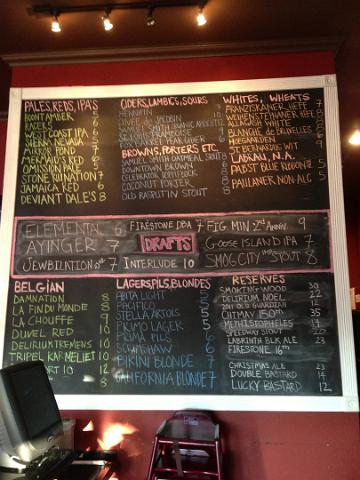 PALES, REDS, IPA'S
BONT AMBER 5
RACER 5 6
WEST COAST IPA 6
SIERRA NEVADA 5
MIRROR POND 7
MERMAID'S RED 6
OMISSION PALE 5
STONE RUINATION 7
JAMAICA RED 6
DEVIANT DALE'S 8
CIDERS, LAMBICS, SOURS
HENNIPIN
CUVEE de JACOBIN 10
SAMUEL SMITH ORGANIC APRICOT
FRAMBOISE
BROWNS, PORTERS ETC.
SAMUEL SMITH OATMEAL STOUT 8
DOWNTOWN BROWN
COCONUT PORTER
OLD RASPUTIN STOUT
WHITES, WHEATS
FRANZISKANER HEFF 7
WEIHENSTEPHANER HEFF 8
ALLAGASH WHITE
BLANCHE de BRUXELLES 8
HOEGAARDEN
ST BERNARDUS WIT
N.A.
PABST BLUE RIBBON
PAULANER NON ALC 5
ELEMENTAL 6
FIRESTONE DBA 7
FIG MTN 2nd ANNIV 9
AYINGER 7
DRAFTS
GOOSE ISLAND IPA 7
JEWBILATION 7
INTERLUDE 10
SMOG CITY STOUT 8
BELGIAN
DAMNATION 8
LA FIN DU MONDE 8
LA CHOUFFE 9
DUVEL RED 10
DELIRIUM TREMENS 10
TRIPEL KARMELIET 10
10 12
LAGERS, PILS, BLONDES
ANITA LIGHT 2
PACIFICO 5
STELLA ARTOIS 5
PRIMO LAGER 5
PRIMA PILS 6
SCRIMSHAW 6
BIKINI BLONDE 7
CALIFORNIA BLONDE 7
RESERVES
SMOKING WOOD 30
DELIRIUM NOEL 22
OLD GUARDIAN
CHIMAY 150th 35
MEPHISTOPHELES
SPEEDWAY STOUT 20
LABYRINTH BLK ALE 23
FIRESTONE 16th
CHRISTMAS ALE 23
DOUBLE BASTARD
LUCKY BASTARD 12